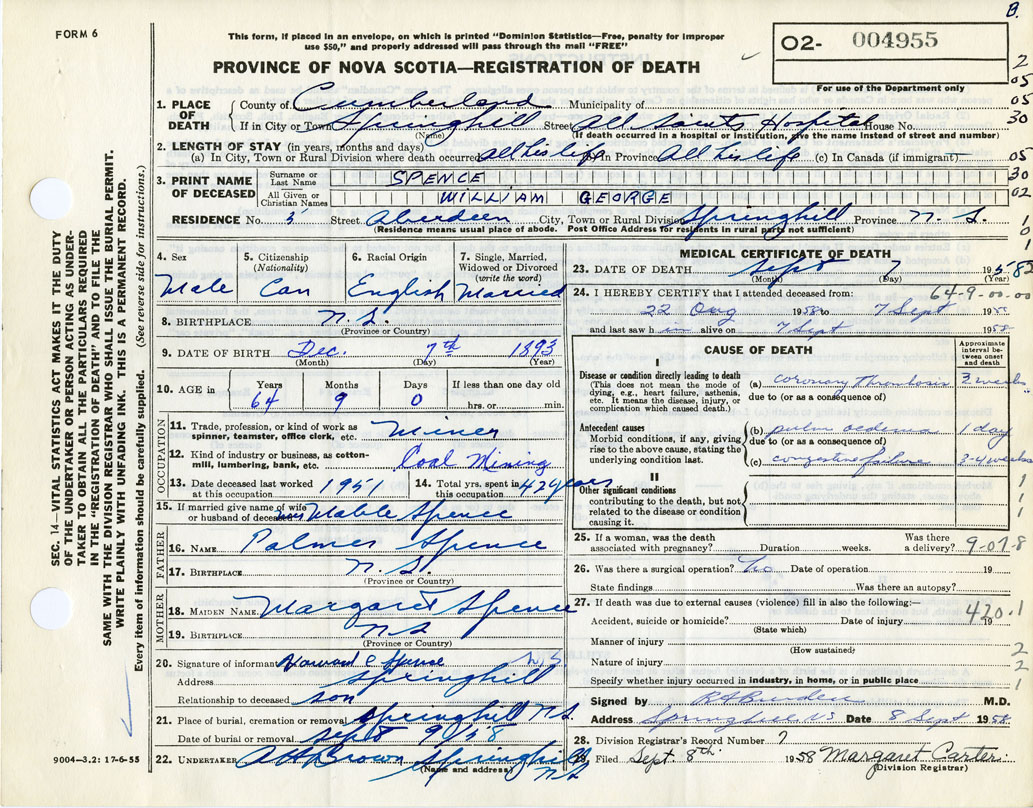 B.
FORM 6
This form, if placed in an envelope, on which is printed "Dominion Statistics—Free, penalty for improper
use $50," and properly addressed will pass through the mail "FREE"
O2- 004955
For use of the Department only
PROVINCE OF NOVA SCOTIA—REGISTRATION OF DEATH
2
05
05
30
05
30
02
0
1
1. PLACE OF DEATH
County of Cumberland Municipality of
If in City or Town Springhill Street All Saints Hospital House No.
(Name) (If death occurred in a hospital or institution, give the name instead of street and number)
2. LENGTH OF STAY (in years, months and days)
(a) In City, Town or Rural Division where death occurred All his life (b) In Province All his life (c) In Canada (if immigrant)
3. PRINT NAME OF DECEASED
Surname or Last Name SPENCE
All Given or Christian Names WILLIAM GEORGE
RESIDENCE No. 3 Street Aberdeen City, Town or Rural Division Springhill Province N. S.
(Residence means usual place of abode. Post Office Address for residents in rural parts not sufficient)
4. Sex
Male
5. Citizenship (Nationality)
Can
6. Racial Origin
English
7. Single, Married, Widowed or Divorced (write the word)
Married
8. BIRTHPLACE N. S.
(Province or Country)
9. DATE OF BIRTH Dec. 7th 1893
(Month) (Day) (Year)
10. AGE in Years Months Days If less than one day old
64 9 0 hrs. or min.
OCCUPATION
11. Trade, profession, or kind of work as spinner, teamster, office clerk, etc. Miner
12. Kind of industry or business, as cotton-mill, lumbering, bank, etc. Coal Mining
13. Date deceased last worked at this occupation 1951
14. Total yrs. spent in this occupation 42 years
15. If married give name of wife or husband of deceased Mable Spence
FATHER
16. NAME Palmer Spence
17. BIRTHPLACE N. S.
(Province or Country)
MOTHER
18. MAIDEN NAME Margaret Spence
19. BIRTHPLACE N S
(Province or Country)
20. Signature of informant Howard C Spence
Address Springhill N. S.
Relationship to deceased son
21. Place of burial, cremation or removal Springhill N. S.
Date of burial or removal Sept 9 58
22. UNDERTAKER A H Brown Springhill N S
(Name and address)
MEDICAL CERTIFICATE OF DEATH
23. DATE OF DEATH Sept 7 1958
(Month) (Day) (Year)
64-9-00-00
24. I HEREBY CERTIFY that I attended deceased from:
22 Aug 1958 to 7 Sept 1958
and last saw h im alive on 7 Sept 1958
CAUSE OF DEATH
Approximate interval between onset and death
I
Disease or condition directly leading to death
(This does not mean the mode of dying, e.g., heart failure, asthenia, etc. It means the disease, injury, or complication which caused death.)
(a) coronary thrombosis 3 weeks
due to (or as a consequence of)
Antecedent causes
Morbid conditions, if any, giving rise to the above cause, stating the underlying condition last.
(b) pulm oedema 1 day
due to (or as a consequence of)
(c) congestive failure 3-4 weeks
II
Other significant conditions
contributing to the death, but not related to the disease or condition causing it.
1
1
1
25. If a woman, was the death associated with pregnancy? Duration weeks. Was there a delivery?
9-07-8
26. Was there a surgical operation? No Date of operation 19
State findings Was there an autopsy?
27. If death was due to external causes (violence) fill in also the following:—
Accident, suicide or homicide? Date of injury 19
(State which)
420.1
Manner of injury
(How sustained)
Nature of injury
Specify whether injury occurred in industry, in home, or in public place
2
2
1
Signed by M.D.
Address Springhill NS Date 8 Sept 1958
28. Division Registrar's Record Number 7
29. Filed Sept. 8th 1958 Margaret Carter
(Division Registrar)
SEC. 14—VITAL STATISTICS ACT MAKES IT THE DUTY
OF THE UNDERTAKER OR PERSON ACTING AS UNDER-
TAKER TO OBTAIN ALL THE PARTICULARS REQUIRED
IN THE "REGISTRATION OF DEATH" AND TO FILE THE
SAME WITH THE DIVISION REGISTRAR WHO SHALL ISSUE THE BURIAL PERMIT.
WRITE PLAINLY WITH UNFADING INK. THIS IS A PERMANENT RECORD.
Every item of information should be carefully supplied. (See reverse side for instructions.)
9004—3.2: 17-6-55